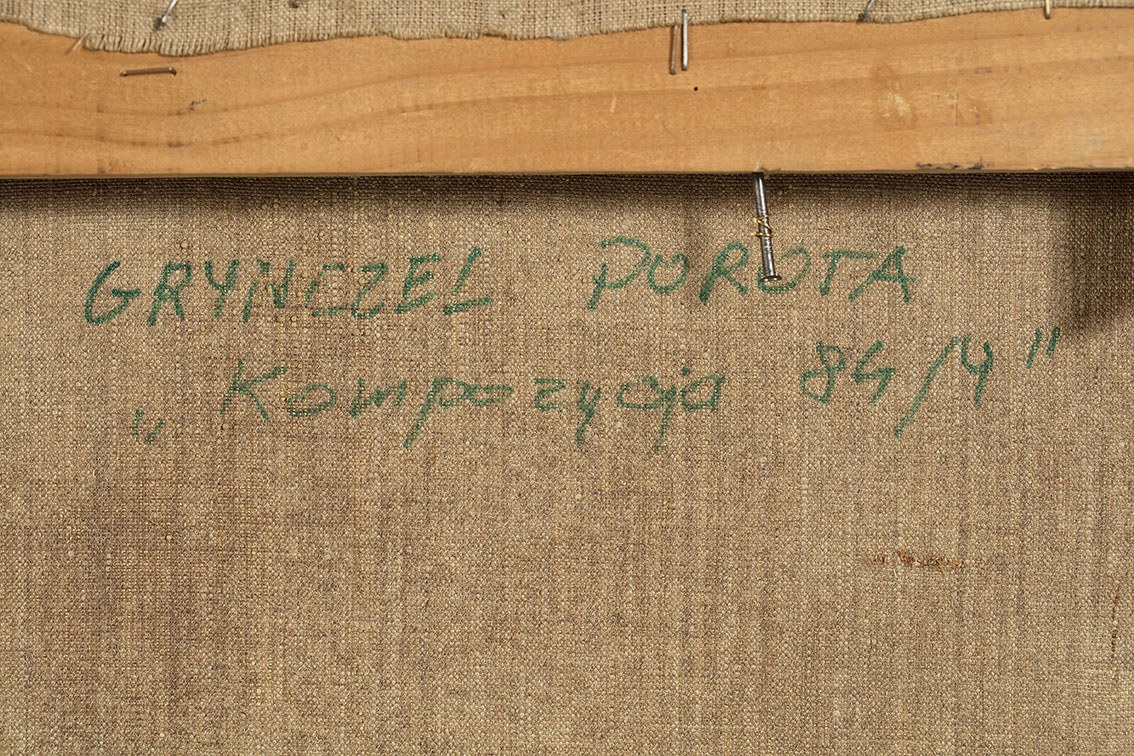 GRYNCZEL DOROTA
„Kompozycja 84/4"